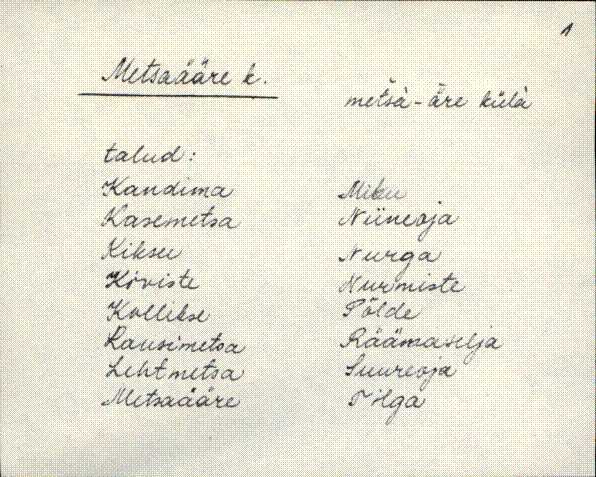 1
Metsaääre k.
metsà-äre külà
talud:
Kandima
Kasemetsa
Kiksu
Kiviste
Kollikse
Lausimetsa
Lehtmetsa
Metsaääre
Miku
Niineoja
Nurga
Nurmiste
Põlde
Räämaselja
Suureoja
Tilga